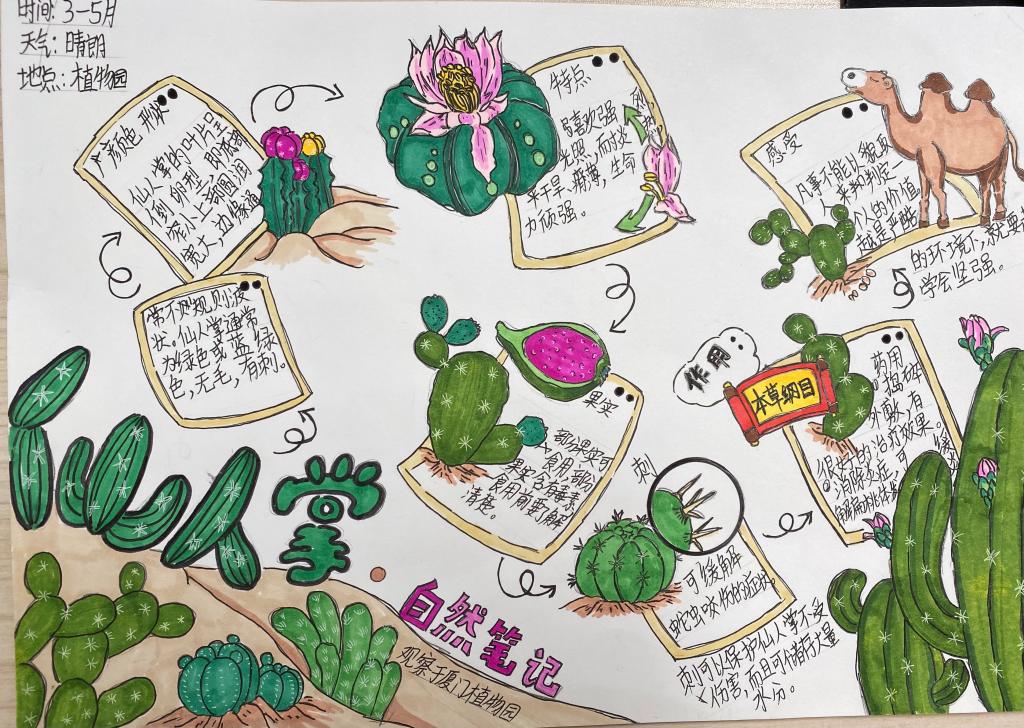 时间:3-5月
天气:晴朗
地点:植物园
颜色 形状
仙人掌的叶片呈
倒卵形,即底部
窄小上部圆润
宽大,边缘通
常不规则波
状。仙人掌通常
为绿色或蓝绿
色,无毛,有刺。
特点
喜欢强烈
光照,耐炎热
干旱、瘠薄,生命
力顽强。
果实
部分果实可
食用,部分
果实含有毒素
食用前要了解
清楚。
刺
可缓解
蛇虫咬伤的症状。
刺可以保护仙人掌不受
伤害,而且可储存大量
水分。
作用
本草纲目
药用
捣碎
外敷,有
很好的治疗效果。
消除炎症,可缓
解扁桃体发炎
感受
凡事不能以貌取
人来判定
个人的价值,
越是严酷
的环境下,就要
学会坚强。
仙人掌
自然笔记
观察于厦门植物园